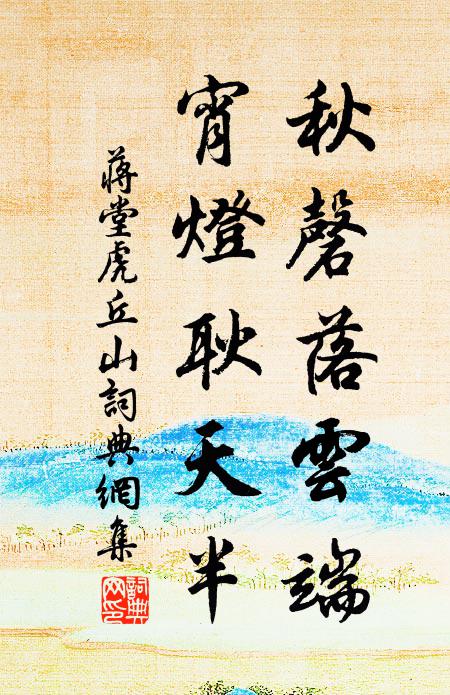 秋磬落雲端
宵燈耿天半
蔣堂虎丘山詞典網集
詞典网印